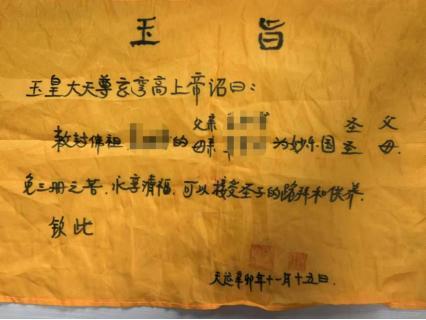 玉 旨
玉皇大天尊玄穹高上帝诏曰：
父亲 圣 父
敕封佛祖 的 母亲 为妙乐国 圣 母.
免三册之苦.永享清福.可以接受圣子的跪拜和供养.
钦此
天运辛卯年十一月十五日.